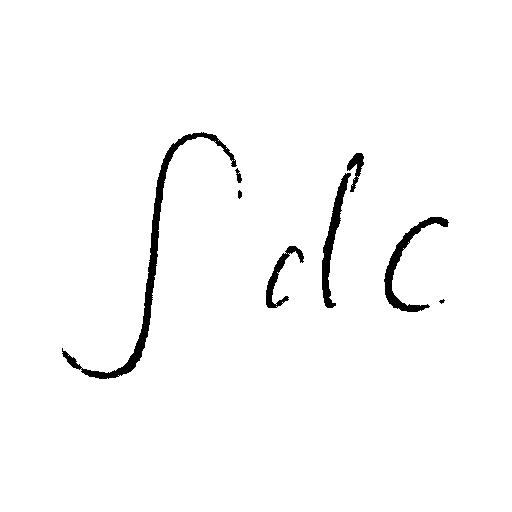 ∫dc